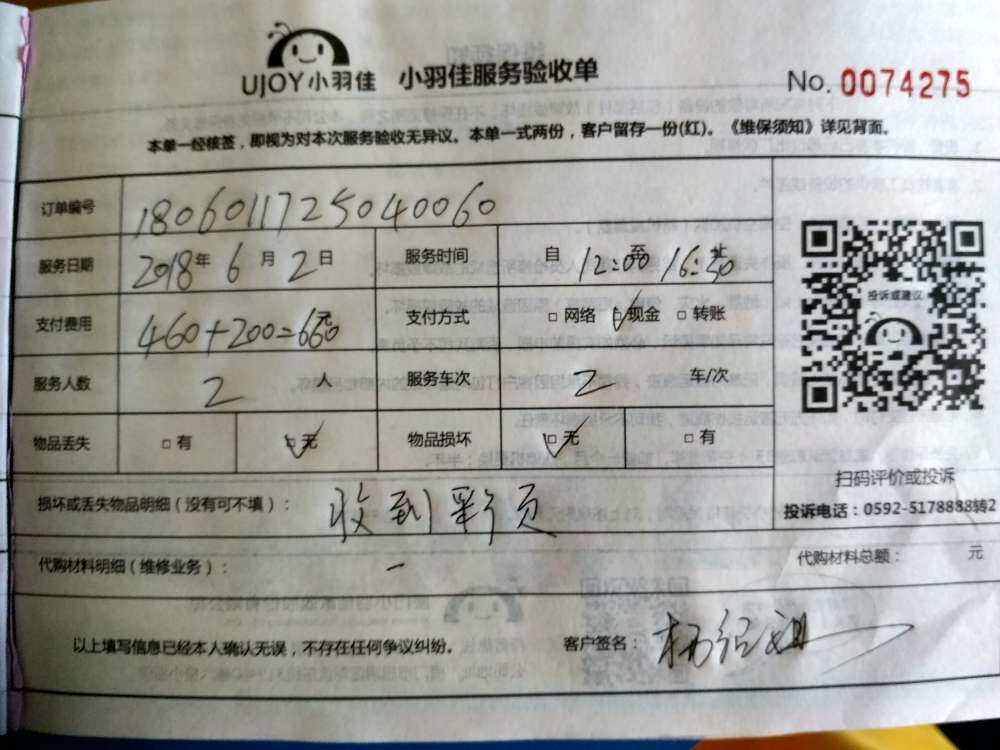 UJOY小羽佳 小羽佳服务验收单
No. 0074275
本单一经核签，即视为对本次服务验收无异议。本单一式两份，客户留存一份(红)。《维保须知》详见背面。
订单编号 1806011725040060
服务日期 2018年 6 月 2 日 服务时间 自 12:00 至 16:50
投诉或建议
支付费用 460+200=660元 支付方式 □网络 ☑现金 □转账
服务人数 2 人 服务车次 2 车/次
物品丢失 □有 ☑无 物品损坏 ☑无 □有
扫码评价或投诉
损坏或丢失物品明细（没有可不填）： 收到彩页
投诉电话：0592-5178888转2
代购材料明细（维修业务）： — 代购材料总额： 元
以上填写信息已经本人确认无误，不存在任何争议纠纷。 客户签名：杨